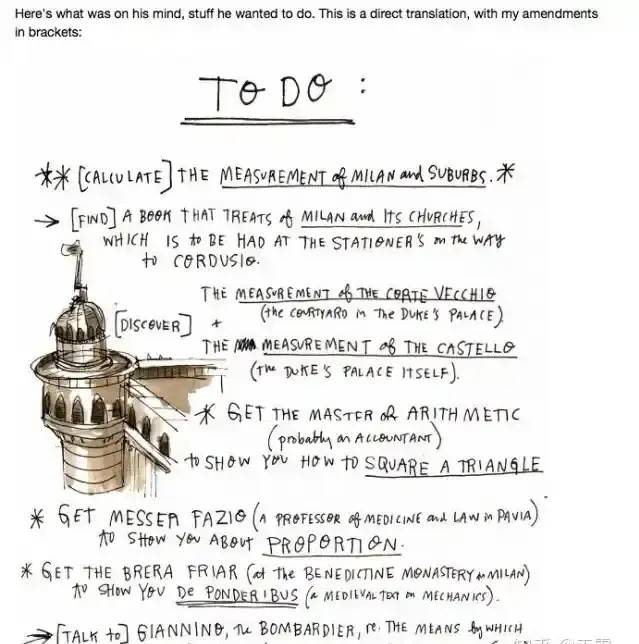 Here's what was on his mind, stuff he wanted to do. This is a direct translation, with my amendments
in brackets:
TO DO :
** [CALCULATE] THE MEASUREMENT of MILAN and SUBURBS. *
→ [FIND] A BOOK THAT TREATS of MILAN and ITS CHURCHES,
WHICH IS to BE HAD AT THE STATIONER'S on the WAY
to CORDUSIO.
THE MEASUREMENT of THE CORTE VECCHIO
(the COURTYARD in The DUKE'S PALACE)
[DISCOVER] +
THE MEASUREMENT of THE CASTELLO
(the DUKE'S PALACE ITSELF).
* GET THE MASTER OR ARITHMETIC
(probably an ACCOUNTANT)
to SHOW YOU HOW TO SQUARE A TRIANGLE
* GET MESSER FAZIO (A PROFESSOR of MEDICINE and LAW in PAVIA)
TO SHOW YOU ABOUT PROPORTION.
* GET THE BRERA FRIAR (at the BENEDICTINE MONASTERY in MILAN)
TO SHOW YOU DE PONDERIBUS (a MEDIEVAL TEXT on MECHANICS).
→ [TALK to] GIANNINO, The BOMBARDIER, re. THE MEANS by WHICH